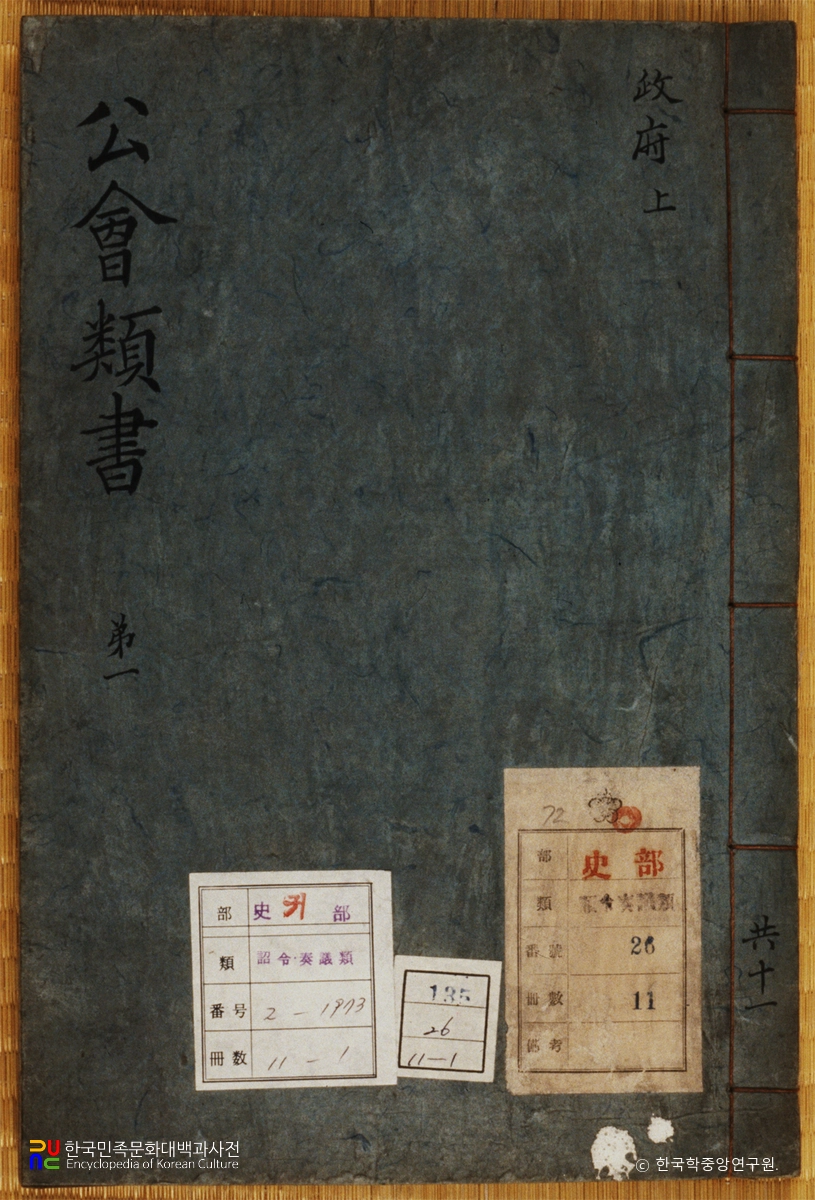 政府 上
公會類書
第一
共十一
部 史 키 部
類 詔令·奏議類
番号 2 - 1973
冊数 11 - 1
135
26
11-1
72
部 史部
類 詔令奏議類
番號 26
冊數 11
備考
한국민족문화대백과사전
Encyclopedia of Korean Culture
© 한국학중앙연구원.